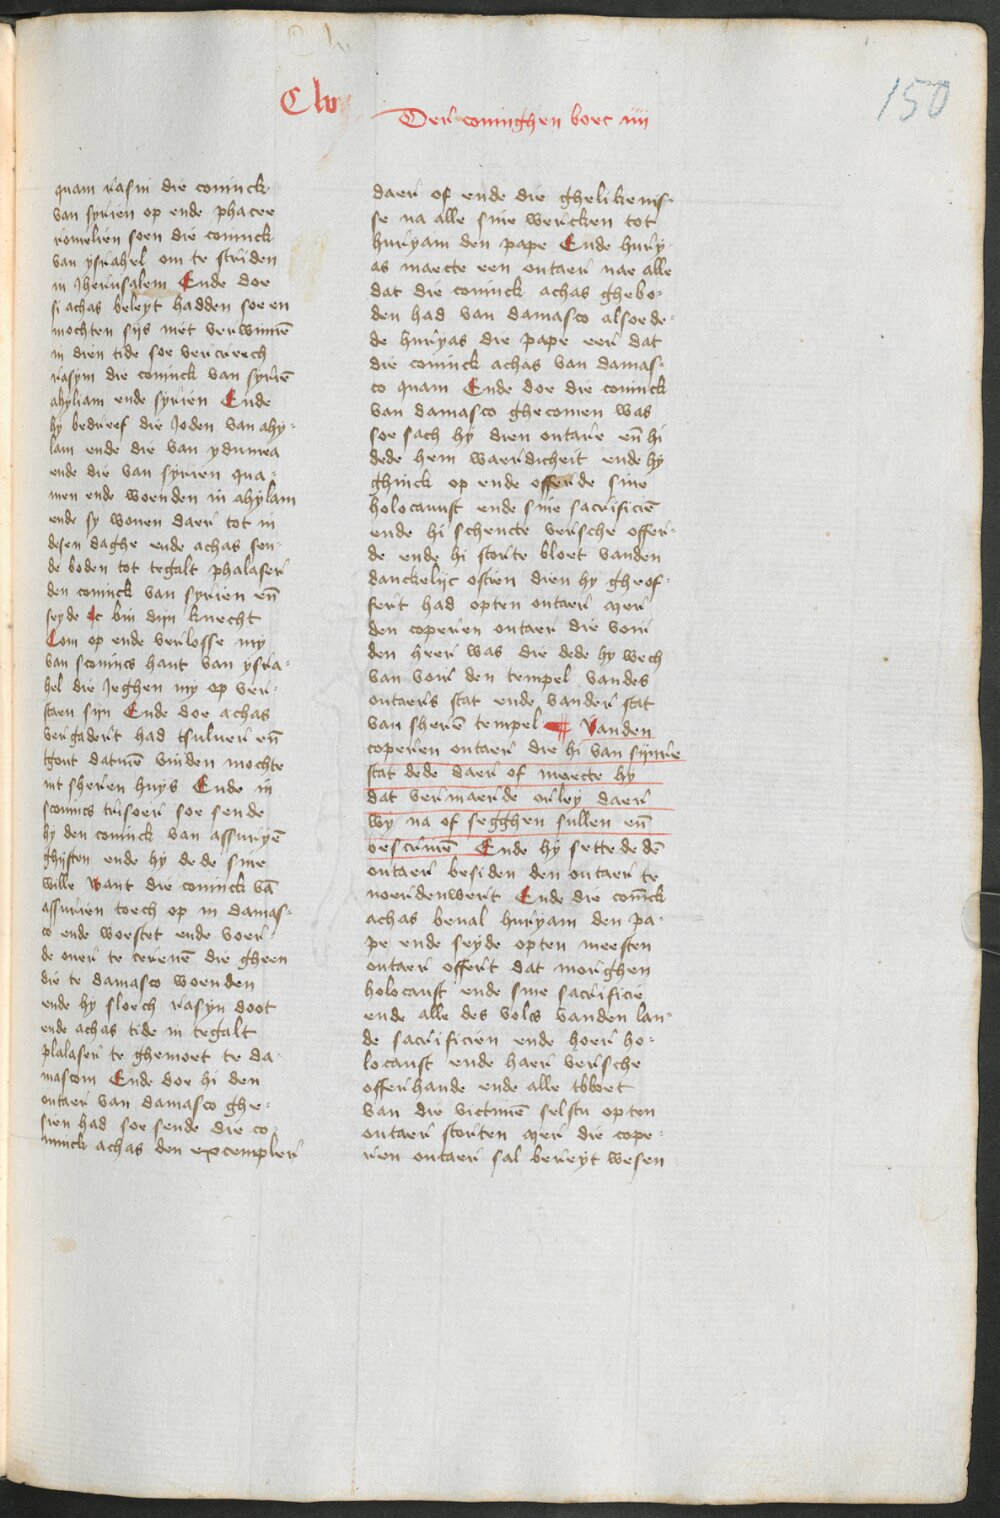 Clv
Der coninghen boec iiii
150
quam rasin die coninck
van syrien op ende phacee
romelien soen die coninck
van ysrahel om te striden
in Jherusalem Ende doe
si achas beleyt hadden soe en
mochten sijs niet verwinnē
in dien tide soe vercreech
rasyin die coninck van syriē
ahyliam ende syrien Ende
hy bedreef die Joden van ahy-
lam ende die van ydumea
ende die van syrien qua-
men ende woenden in ahylam
ende sy wonen daer tot in
desen daghe ende achas sen-
de boden tot tegalt phalaser
den coninck van syrien eñ
seyde Ic bin dijn knecht
Com op ende verlosse my
van sconincs hant van ysra-
hel die Jeghen my op ver-
staen sijn Ende doe achas
vergadert had tsuluer eñ
tgout datmē vinden mochte
int sheren huys Ende in
sconincs trisoer soe sende
hy den coninck van assuryē
ghiften ende hy dede sine
wille Want die coninck vā
assurien toech op in damas-
co ende woestet ende voer-
de ouer te cerenē die gheen
die te damasco woenden
ende hy sloech rasyn doot
ende achas tide in tegalt
plalaser te ghemoet te da-
mascom Ende doe hi den
outaer van damasco ghe-
sien had soe sende die co
ninck achas den excempler
daer of ende die ghelikenis-
se na alle sine wercken tot
huryam den pape Ende hury-
as maecte een outaer nae alle
dat die coninck achas ghebo-
den had van damasco alsoede-
de huryas die pape eer dat
die coninck achas van damas-
co quam Ende doe die coninck
van damasco ghecomen was
soe sach hy dien outare eñ hi
dede hem waerdicheit ende hy
ghinck op ende offerde sine
holocaust ende sine sacrificiē
ende hi schencte versche offer-
de ende hi storte bloet vanden
danckelijc ostien dien hy gheof-
fert had opten outaer mer
den coperen outaer die voir
den heer was die dede hy wech
van voir den tempel vandes
outaers stat ende vander stat
van sherē tempel ¶ Vanden
coperen outaer die hi van sijnre
stat dede daer of maecte hy
dat vermaerde orley daer
wy na of segghen sullen eñ
bescriuē Ende hy settede dē
outaer besiden den outaer te
noerdenwert Ende die conīck
achas beual huryam den pa-
pe ende seyde opten meesten
outaer offert dat morghen
holocaust ende sine sacrificie
ende alle des volcs vanden lan-
de sacrificien ende hoer ho-
locaust ende haer versche
offerhande ende alle tbloet
van die victimē selstu opten
outaer storten mer die cope-
ren outaer sal bereyt wesen